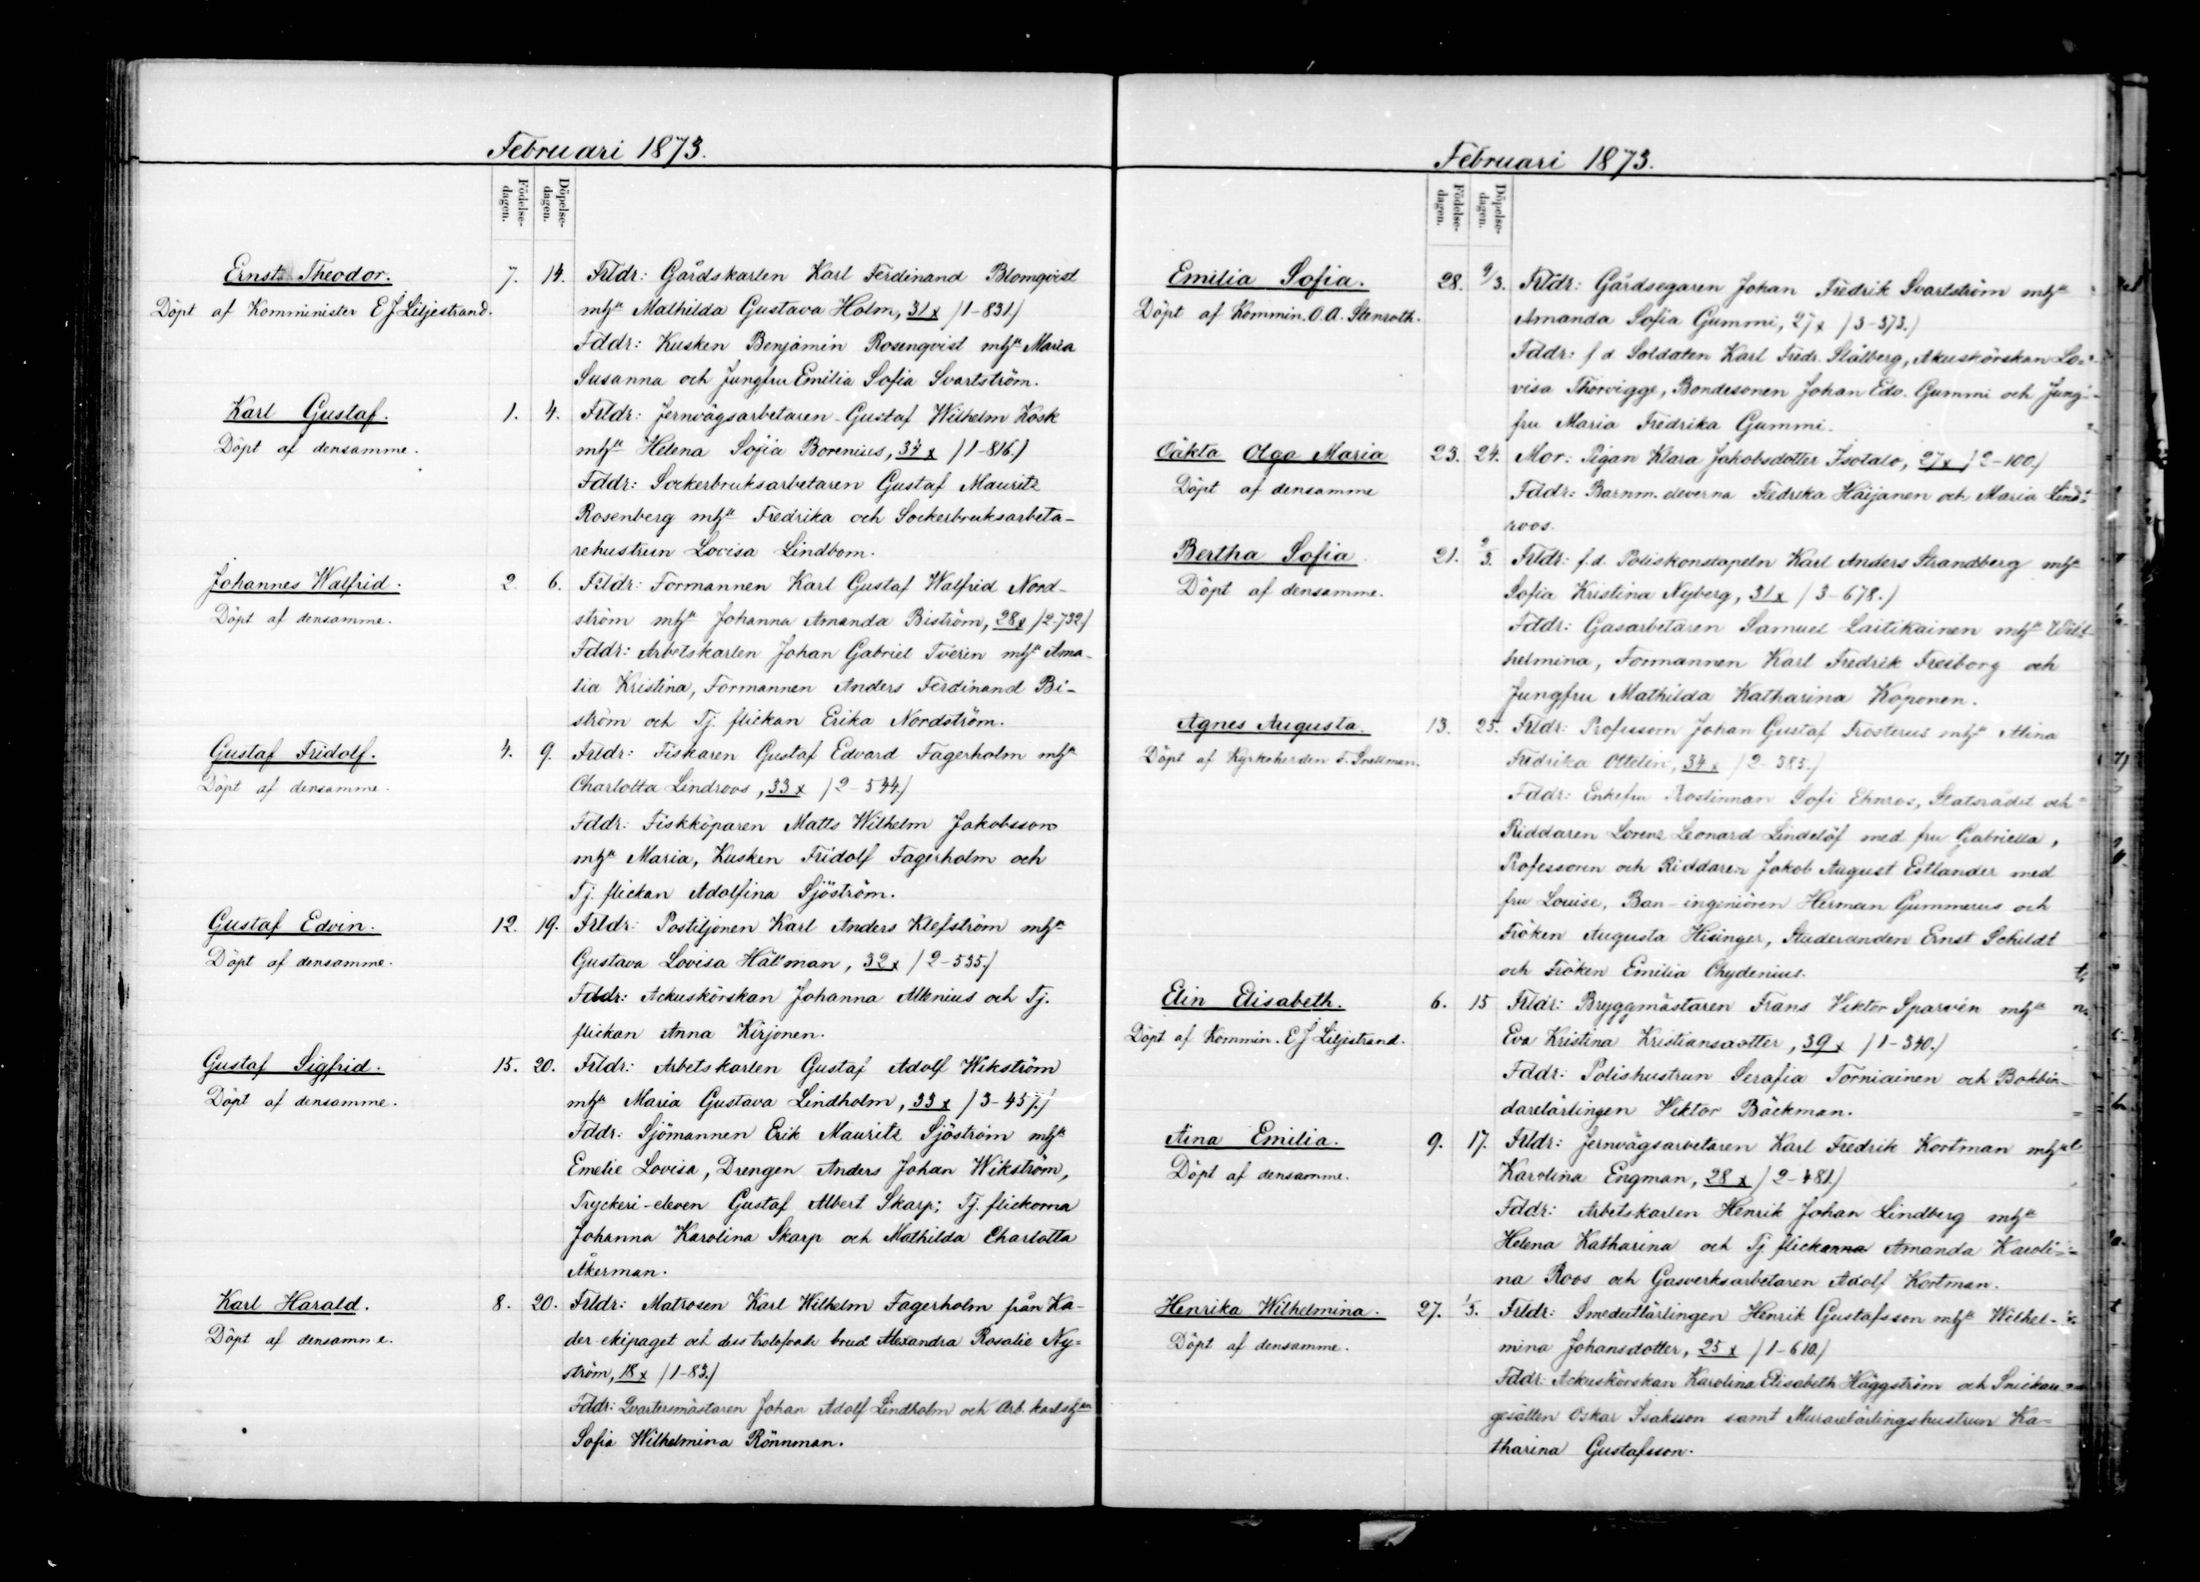 Februari 1873.
Födelse-
dagen.
Döpelse-
dagen.
Ernst Theodor. 7. 14. Frldr: Gårdskarlen Karl Ferdinand Blomqvist
Döpt af Komminister E J Liljestrand. mhu Mathilda Gustava Holm, 31 x /1-831/
Fddr: Kusken Benjamin Rosenqvist mhu Maria
Susanna och Jungfru Emilia Sofia Svartström.
Karl Gustaf. 1. 4. Frldr: Jernvägsarbetaren Gustaf Wilhelm Kosk
Döpt af densamme. mhu Helena Sofia Borenius, 34 x /1-816./
Fddr: Sockerbruksarbetaren Gustaf Mauritz
Rosenberg mhu Fredrika och Sockerbruksarbeta-
rehustrun Lovisa Lindbom.
Johannes Walfrid. 2. 6. Frldr: Formannen Karl Gustaf Walfrid Nord-
Döpt af densamme. ström mhu Johanna Amanda Biström, 28 x /2-732/
Fddr: Arbetskarlen Johan Gabriel Tverin mhu Ama-
lia Kristina, Formannen Anders Ferdinand Bi-
ström och Tj. flickan Erika Nordström.
Gustaf Fridolf. 4. 9. Frldr: Fiskaren Gustaf Edvard Fagerholm mhu
Döpt af densamme. Charlotta Lindroos, 33 x /2-544./
Fddr: Fiskköparen Matts Wilhelm Jakobsson
mhu Maria, Kusken Fridolf Fagerholm och
Tj. flickan Adolfina Sjöström.
Gustaf Edvin. 12. 19. Frldr: Postiljonen Karl Anders Klefström mhu
Döpt af densamme. Gustava Lovisa Hällman, 32 x /2-535./
Fddr: Ackuskörskan Johanna Allenius och Tj.
flickan Anna Kirjonen.
Gustaf Sigfrid. 15. 20. Frldr: Arbetskarlen Gustaf Adolf Wikström
Döpt af densamme. mhu Maria Gustava Lindholm, 33 x /3-457./
Fddr: Sjömannen Erik Mauritz Sjöström mhu
Emelie Lovisa, Drengen Anders Johan Wikström,
Tryckeri-eleven Gustaf Albert Skarp; Tj. flickorna
Johanna Karolina Skarp och Mathilda Charlotta
Åkerman.
Karl Harald. 8. 20. Frldr: Matrosen Karl Wilhelm Fagerholm från Ka-
Döpt af densamme. der-ekipaget och dess trolofvade brud Alexandra Rosalie Ny-
ström, 18 x /1-83./
Fddr: Qvartersmästaren Johan Adolf Lindholm och Arb. karlshun
Sofia Wilhelmina Rönnman.
Februari 1873.
Födelse-
dagen.
Döpelse-
dagen.
Emilia Sofia. 28. 9/3. Frldr: Gårdsegaren Johan Fredrik Svartström mhu
Döpt af Kommin. O. A. Stenroth. Amanda Sofia Gummi, 27 x /3-373./
Fddr: f d. Soldaten Karl Fredr. Stålberg, Akuskörskan Lo-
visa Thorvigge, Bondesonen Johan Edv. Gummi och Jung-
fru Maria Fredrika Gummi.
Oäkta Olga Maria 23. 24. Mor: Pigan Klara Jakobsdotter Isotalo, 27 x /2-100./
Döpt af densamme Fddr: Barnm. eleverna Fredrika Häijänen och Maria Lind-
roos.
Bertha Sofia 21. 2/3. Frldr: f.d. Poliskonstapeln Karl Anders Strandberg mhu
Döpt af densamme. Sofia Kristina Nyberg, 31 x /3-678./
Fddr: Gasarbetaren Samuel Laitikainen mhu Wil-
helmina, Formannen Karl Fredrik Freiborg och
Jungfru Mathilda Katharina Koponen.
Agnes Augusta. 13. 25. Frldr: Professorn Johan Gustaf Frosterus mhu Alina
Döpt af Kyrkoherden F. Snellman. Fredrika Ottelin, 34 x /2-385./
Fddr: Enkefru Prostinnan Sofi Ehnros, Statsrådet och
Riddaren Lorenz Leonard Lindelöf med fru Gabriella,
Professoren och Riddaren Jakob August Estlander med
fru Louise, Ban-ingeniören Herman Gummerus och
Fröken Augusta Hisinger, Studeranden Ernst Schildt
och Fröken Emilia Chydenius.
Elin Elisabeth. 6. 15 Frldr: Bryggmästaren Frans Viktor Sparvén mhu
Döpt af Kommin. E J Liljestrand. Eva Kristina Kristiansdotter, 39 x /1-340./
Fddr: Polishustrun Serafia Torniainen och Bokbin-
darelärlingen Viktor Bäckman.
Aina Emilia. 9. 17. Frldr: Jernvägsarbetaren Karl Fredrik Kortman mhu
Döpt af densamme. Karolina Engman, 28 x /2-481./
Fddr: Arbetskarlen Henrik Johan Lindberg mhu
Helena Katharina och Tj flickanna Amanda Karoli-
na Roos och Gasverksarbetaren Adolf Kortman.
Henrika Wilhelmina. 27. 1/3. Frldr: Smedutlärlingen Henrik Gustafsson mhu Wilhel-
Döpt af densamme. mina Johansdotter, 25 x /1-610./
Fddr: Ackuskörskan Karolina Elisabeth Häggström och Snickare-
gesällen Oskar Isaksson samt Murarelärlingshustrun Ka-
tharina Gustafsson.